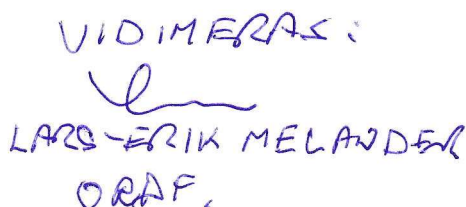 VIDIMERAS:
LARS-ERIK MELANDER
ORDF.